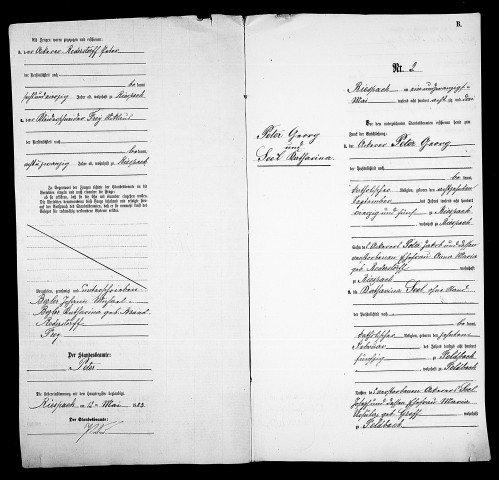 Als Zeugen waren zugezogen und erschienen:
3. der Ackerer Rederstorff Peter
der Persönlichkeit nach
be kannt,
Jahre alt, wohnhaft zu Riespach
4. der
der Persönlichkeit nach
be kannt,
Jahre alt, wohnhaft zu Riespach
In Gegenwart der Zeugen richtete der Standesbeamte an die
Verlobten einzeln und nach einander die Frage:
ob sie erklären, daß sie die Ehe mit einander eingehen wollen.
Die Verlobten beantworteten diese Frage bejahend und erfolgte hier-
auf der Ausspruch des Standesbeamten, daß er sie nunmehr kraft des
Gesetzes für rechtmäßig verbundene Eheleute erkläre.
Vorgelesen, genehmigt und unterschrieben
Katharina geb.
Rederstorff
Der Standesbeamte:
Peter
Die Uebereinstimmung mit dem Hauptregister beglaubigt.
Riespach am Mai 1883
Der Standesbeamte:
B.
Nr. 2
Riespach am einundzwanzigsten
Mai tausend acht hundert achtzig und drei
Vor dem unterzeichneten Standesbeamten erschienen heute zum
Zweck der Eheschließung:
1. der Ackerer Peter Georg
Peter Georg
und
Seel Katharina
der Persönlichkeit nach
be kannt,
katholischer Religion, geboren den
September des Jahres tausend acht hundert
vierzig und fünf zu Riespach
wohnhaft zu Riespach
Sohn des Ackerers Peter Jakob und dessen
verstorbenen Ehefrau Anna Maria
geb. Rederstorff wohnhaft
zu Riespach
2. die Katharina Seel ohne Stand
der Persönlichkeit nach
be kannt,
katholischer Religion, geboren den
Februar des Jahres tausend acht hundert
fünfzig zu Feldbach
wohnhaft zu Feldbach
Tochter des verstorbenen Ackerers Seel
Joseph und dessen Ehefrau Maria
geb. wohnhaft
zu Feldbach